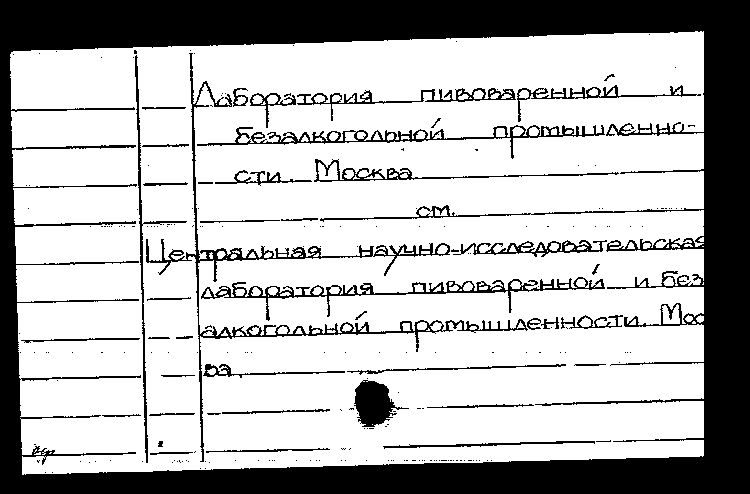 Лаборатория пивоваренной и
безалкогольной промышленно-
сти. Москва
см.
Центральная научно-исследовательская
лаборатория пивоваренной и без
алкогольной промышленности. Мос
ва.